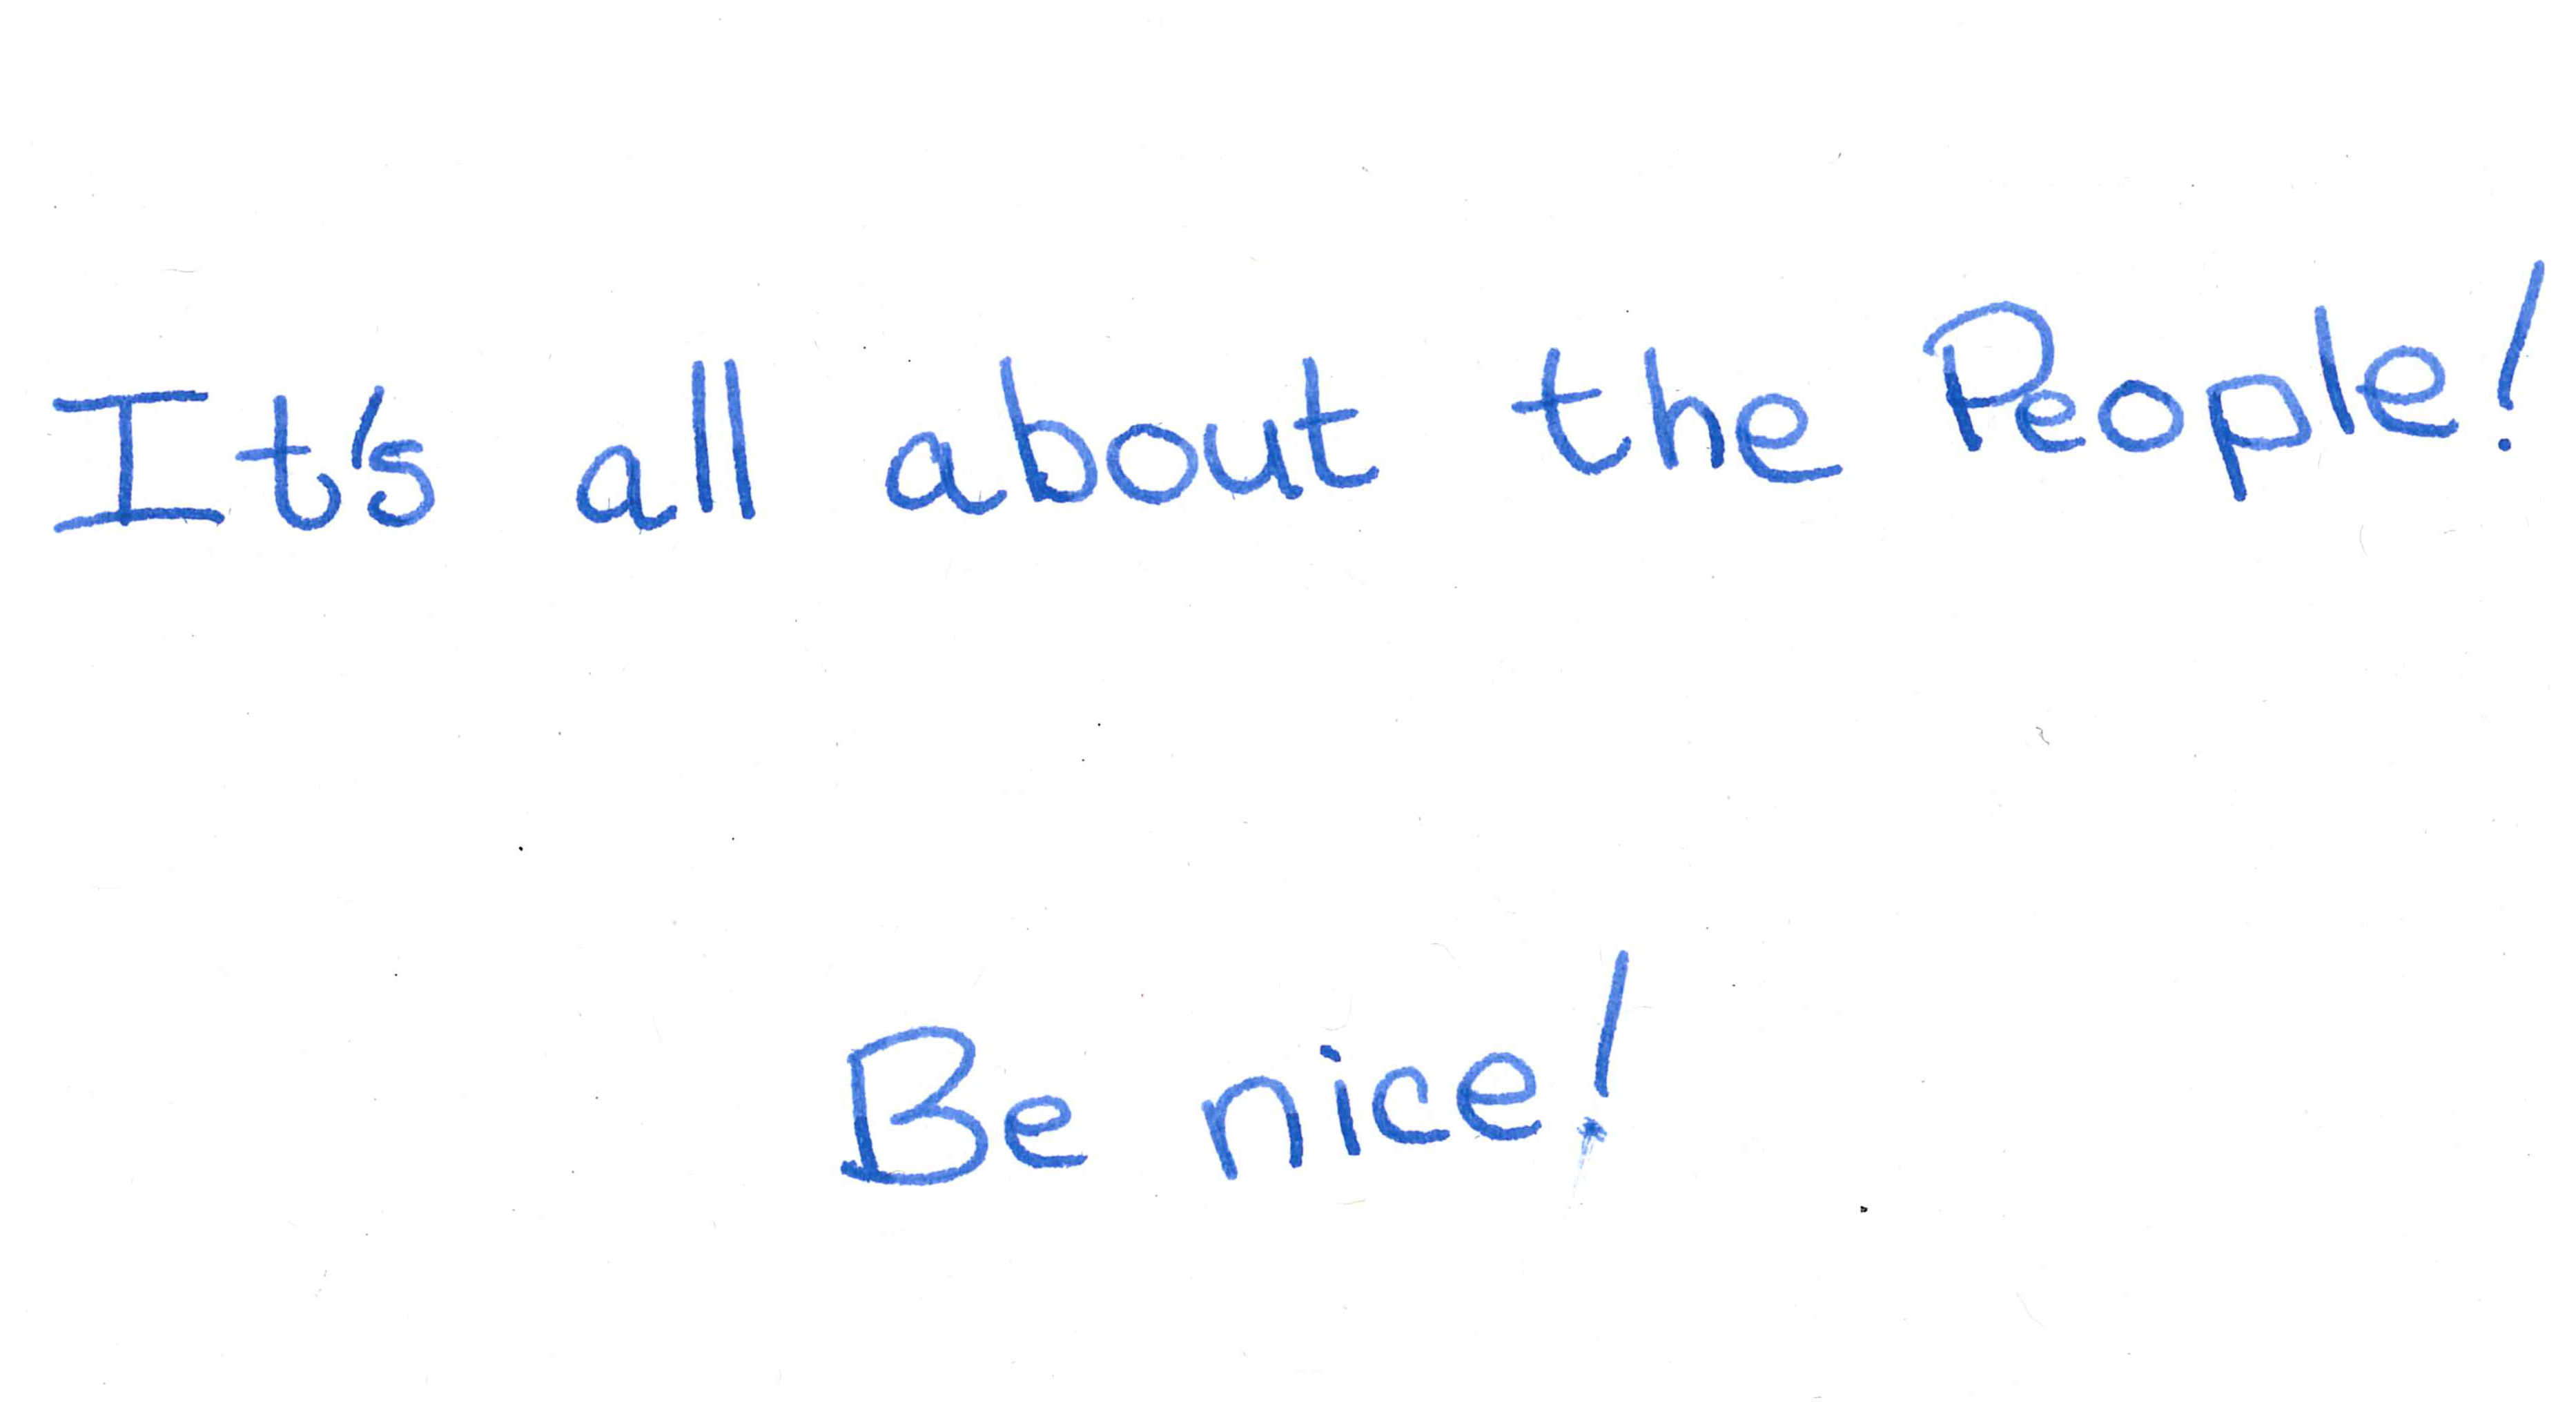 It's all about the People!
Be nice!